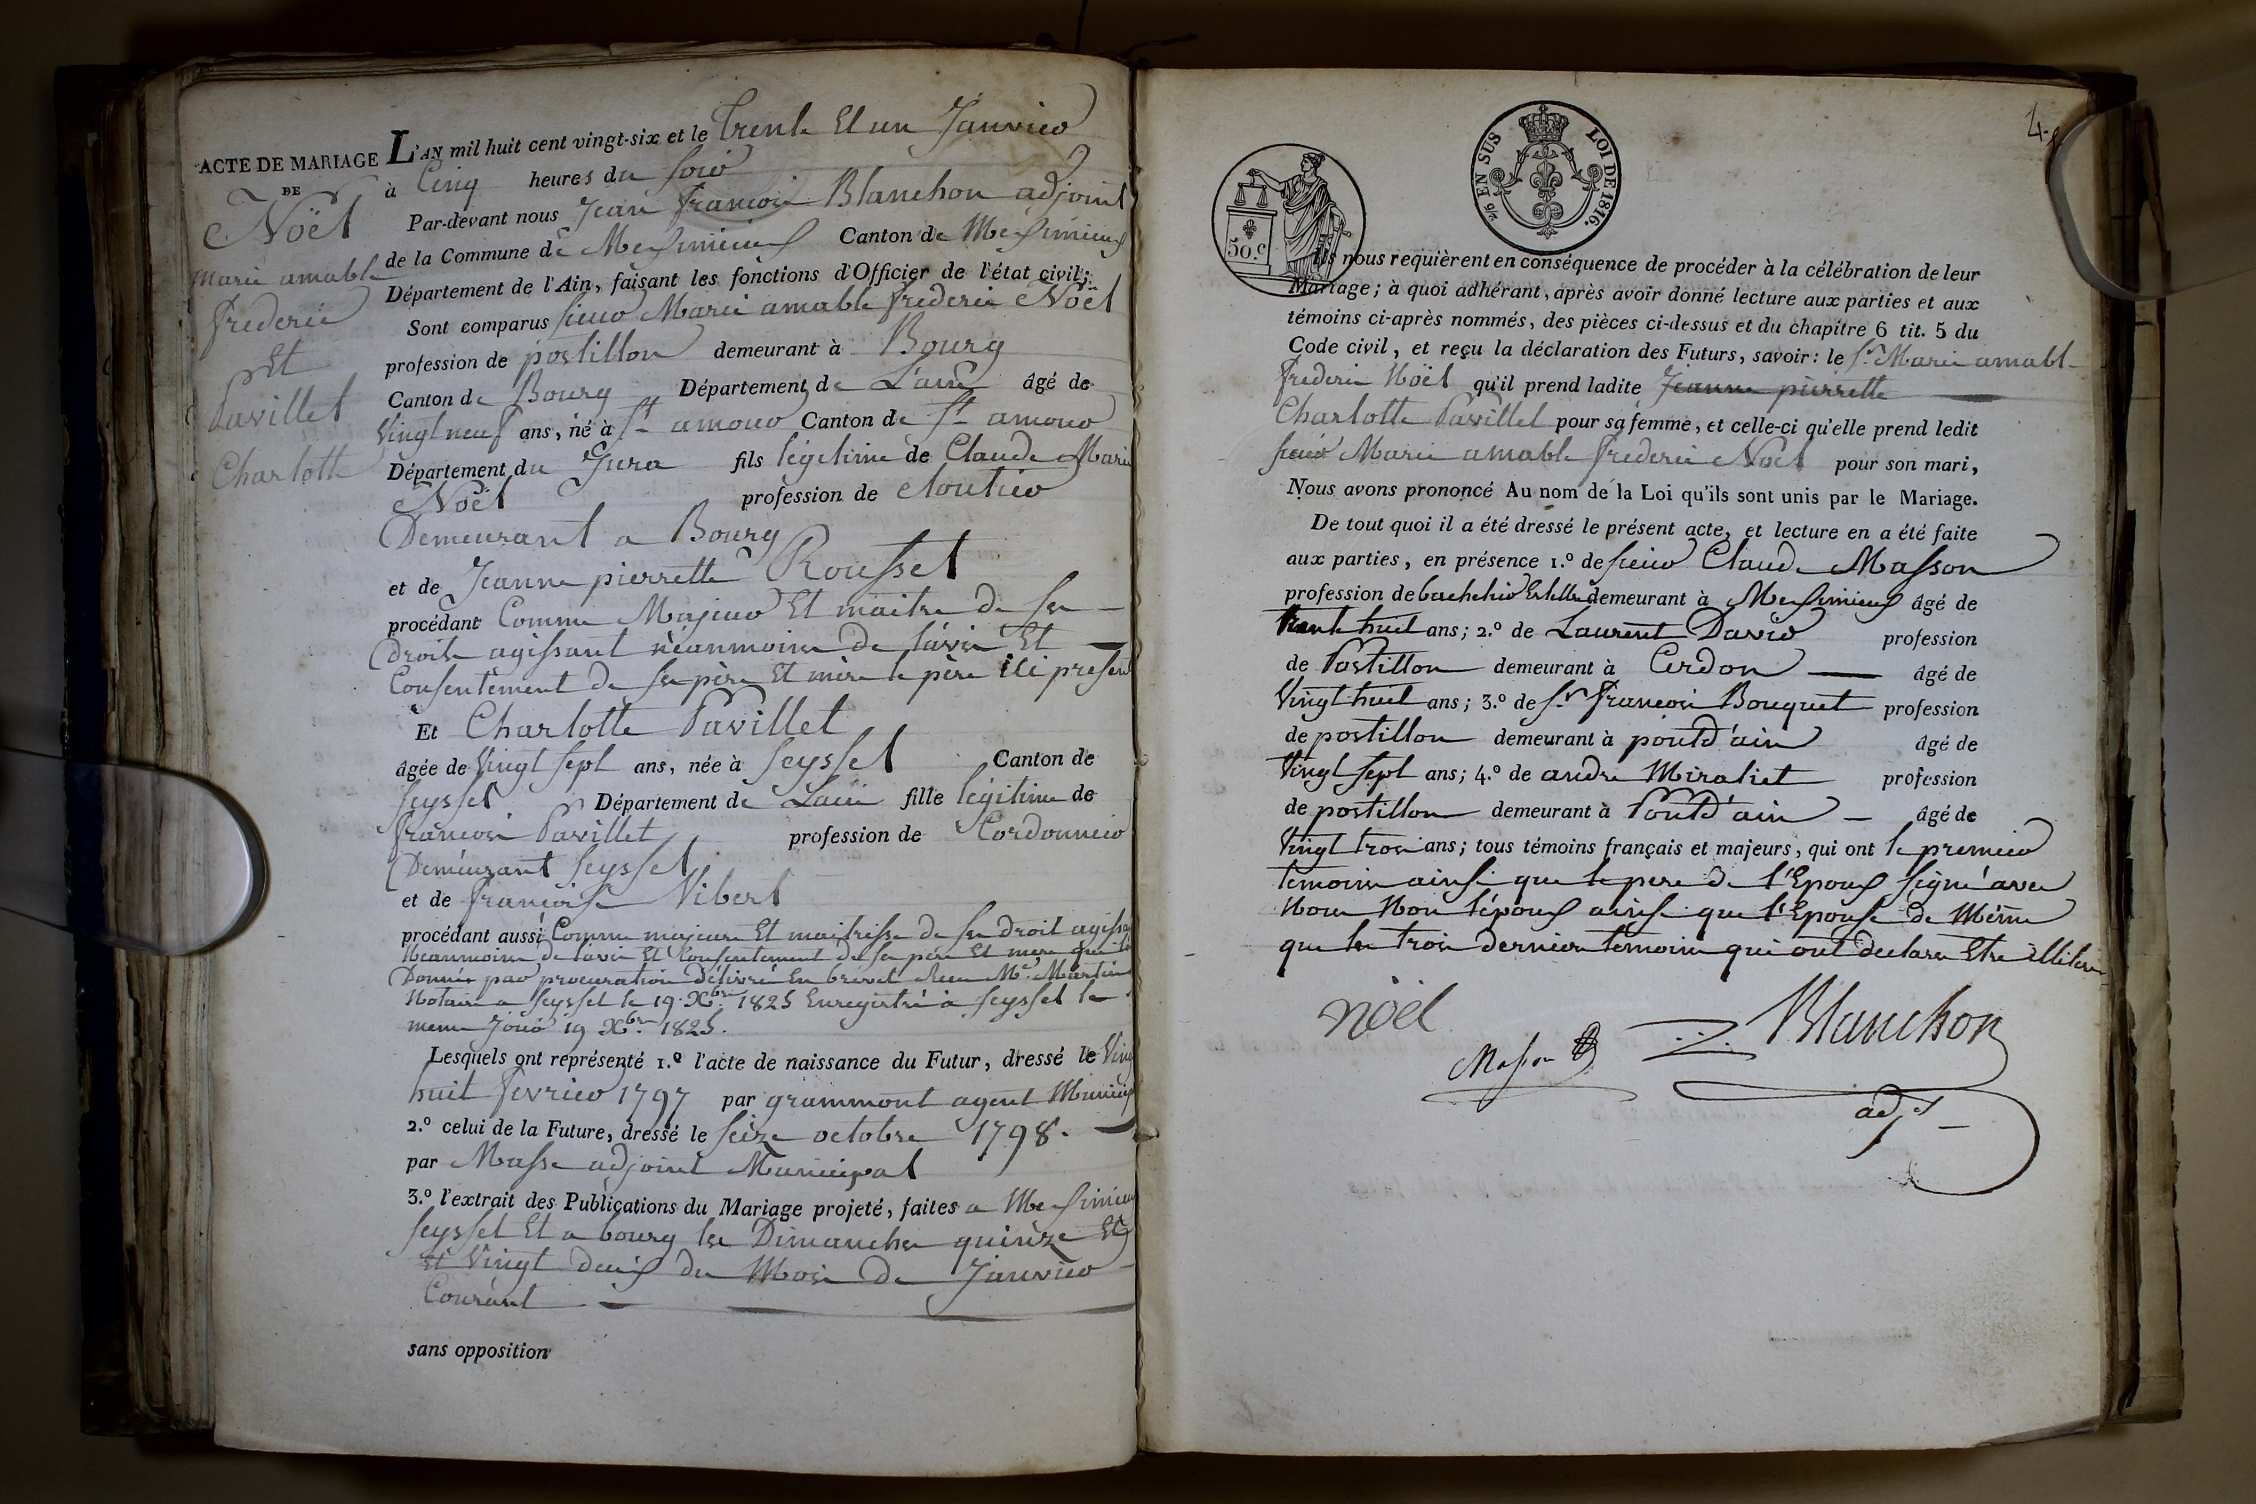 ACTE DE MARIAGE
DE
Noël
Marie amable
frederic
Et
Pavillet
Charlotte
L'AN mil huit cent vingt-six et le trente Et un Janvier
à Cinq heures du soir
Par-devant nous Jean francois Blanchon adjoint
de la Commune de Meximieux Canton de Meximieux
Département de l'Ain, faisant les fonctions d'Officier de l'état civil;
Sont comparus sieur Marie amable frederic Noël
profession de postillon demeurant à Bourg
Canton de Bourg Département de L'ain âgé de
Vingt neuf ans, né à St amour Canton de St amour
Département du Jura fils légitime de Claude Marie
Noël profession de cloutier
Demeurant a Bourg
et de Jeanne pierrette Rousset
procédant Comme Majeur Et maitre de ses
droits agissant néanmoins de l'avis Et
Consentement de ses père Et mère le père ici present
Et Charlotte Pavillet
âgée de Vingt sept ans, née à Seyssel Canton de
Seyssel Département de Lain fille légitime de
francois Pavillet profession de Cordonnier
Demeurant Seyssel
et de francoise Vibert
procédant aussi Comme majeure Et maitresse de ses droit agissant
Neanmoins de l'avis Et Consentement de ses père Et mere
Donnée par procuration délivré En brevet Me. Martin
Notaire a Seyssel le 19 Xbre 1825 Enregistré à Seyssel le
meme Jour 19 Xbre 1825.
Lesquels ont représenté 1.º l'acte de naissance du Futur, dressé le Vingt
huit fevrier 1797 par grammont agent Municip
2.º celui de la Future, dressé le seize octobre 1798.
par Masse adjoint Municipal
3.º l'extrait des Publications du Mariage projeté, faites a Meximieux
Seyssel Et a bourg les Dimanches quinze Et
Et Vingt deux du Mois de Janvier
Courant
sans opposition
4
9/10 EN SUS LOI DE 1816.
50 C
Ils nous requièrent en conséquence de procéder à la célébration de leur
Mariage; à quoi adhérant, après avoir donné lecture aux parties et aux
témoins ci-après nommés, des pièces ci-dessus et du chapitre 6 tit. 5 du
Code civil, et reçu la déclaration des Futurs, savoir: le Sr. Marie amable
frederic Noël qu'il prend ladite Jeanne pierrette
Charlotte Pavillet pour sa femme, et celle-ci qu'elle prend ledit
sieur Marie amable frederic Noël pour son mari,
Nous avons prononcé Au nom de la Loi qu'ils sont unis par le Mariage.
De tout quoi il a été dressé le présent acte, et lecture en a été faite
aux parties, en présence 1.º de sieur Claude Masson
profession de demeurant à Meximieux âgé de
trente huit ans; 2.º de Laurent David profession
de Postillon demeurant à Cerdon âgé de
Vingt huit ans; 3.º de Sr francois Bouquet profession
de postillon demeurant à pont d'ain âgé de
Vingt sept ans; 4.º de andre Miraliet profession
de postillon demeurant à Pont d'ain âgé de
Vingt trois ans; tous témoins français et majeurs, qui ont le premier
temoin ainsi que le pere de l'Epoux signé avec
Nous Non l'époux ainsi que l'Epouse de Même
que les trois derniers temoins qui ont declare Etre illiteres
noël
Masson
Blanchon
adjt